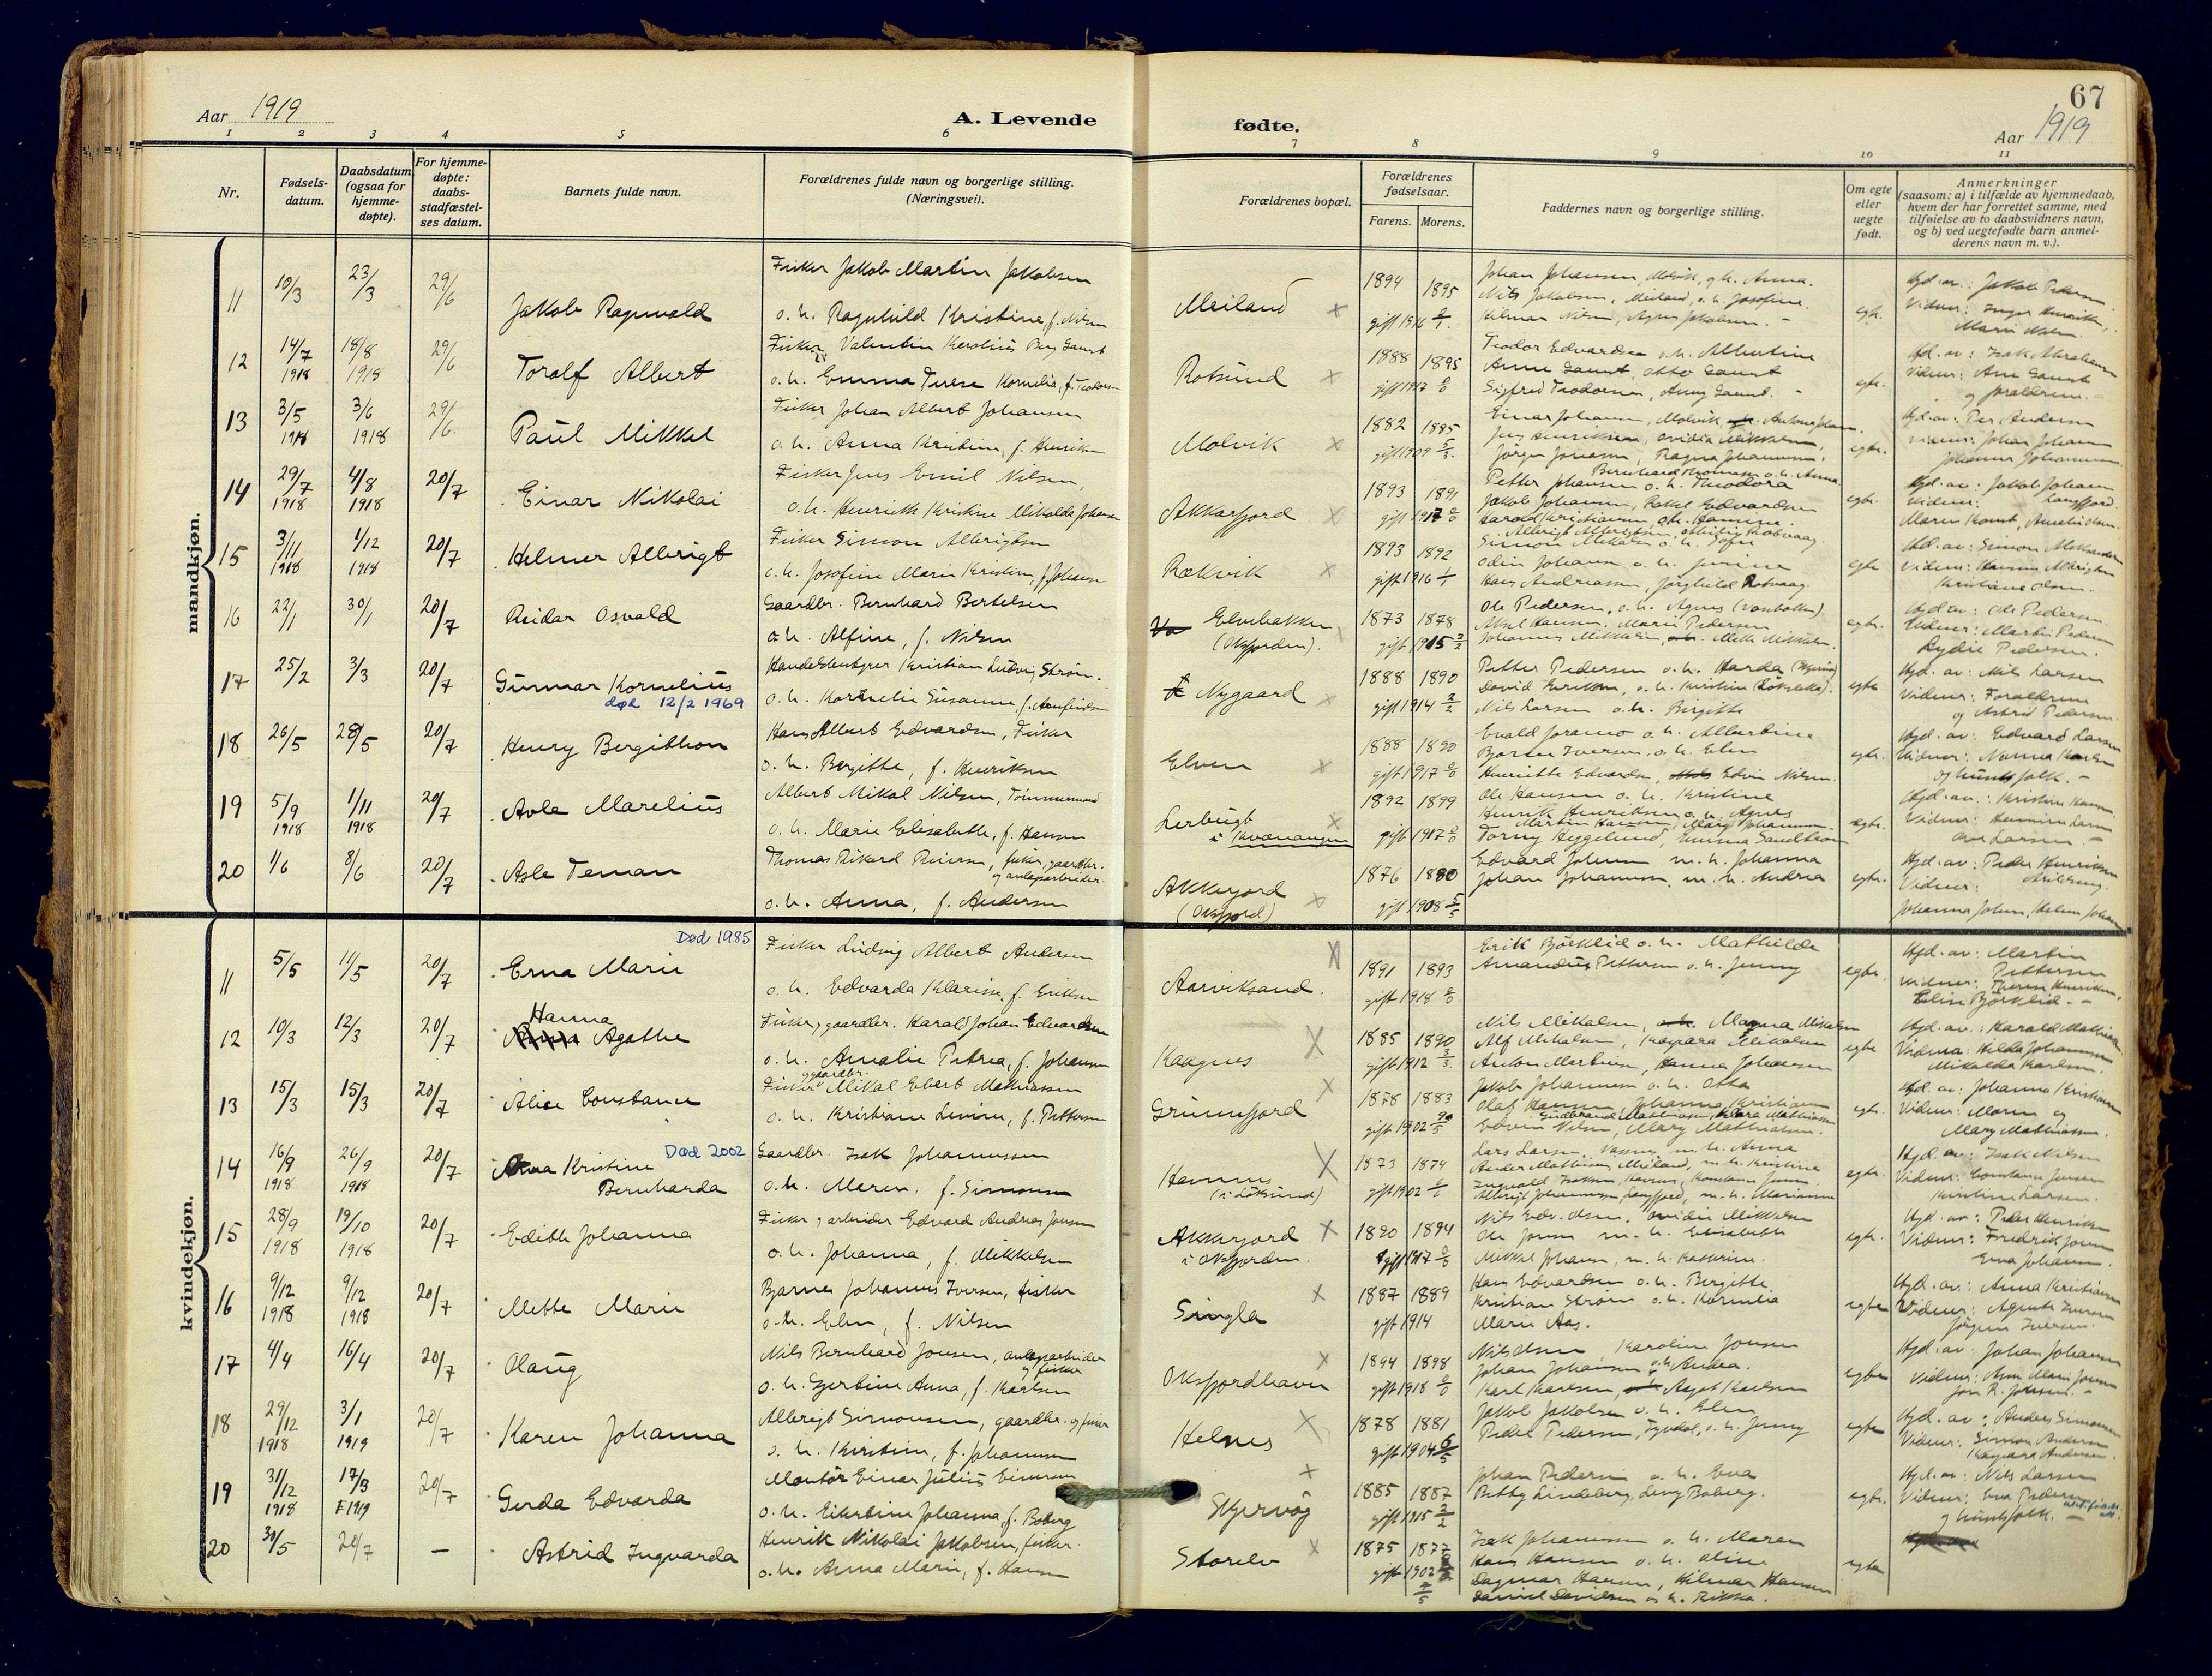 67
Aar 1919
A. Levende
fødte.
Aar 1919
1 2 3 4 5 6 7 8 9 10 11
Nr.
Fødsels-
datum.
Daabsdatum
(ogsaa for
hjemme-
døpte).
For hjemme-
døpte:
daabs-
stadfæstel-
ses datum.
Barnets fulde navn.
Forældrenes fulde navn og borgerlige stilling.
(Næringsvei).
Forældrenes bopæl.
Forældrenes
fødselsaar.
Farens. Morens.
Faddernes navn og borgerlige stilling.
Om egte
eller
uegte
født.
Anmerkninger
(saasom: a) i tilfælde av hjemmedaab,
hvem der har forrettet samme, med
tilføielse av to daabsvidners navn,
og b) ved uegtefødte barn anmel-
derens navn m. v.).
mandkjøn.
11 10/3 23/3 29/6 Jakob Ragnvald
Fisker Jakob Martin Jakobsen
o. h. Ragnhild Kristine, f. Nilsen
Meiland 1894 1895
gift 1916
Johan Johansen, Molvik, o. h. Anna.
Nils Jakobsen, Meiland, o. h. Josefine.
Hilmar Nilsen, Agnes Jakobsen.
Hjd. av: Jakob Pedersen
12 14/7 1918 18/8 1918 29/6 Toralf Albert
Fisker Valentin Kerolius Berg Gamst
o. h. Emma Terese Kornelia, f. Teodorsen
Rotsund 1888 1895
gift 1917
Teodor Edvardsen o. h. Albertine
Anne Gamst, Otto Gamst
Sigfred Teodorsen, Anny Gamst.
egte.
Hjd. av: Isak Abrahamsen
Vidner: Ane Gamst
og forældrene.
13 3/5 1918 3/6 1918 29/6 Paul Mikkel
Fisker Johan Albert Johansen
o. h. Anna Kristine, f. Henriksen
Molvik 1882 1885
gift 1909
Einar Johansen, Molvik, Antona Johansen.
Jens Henriksen, Ovidia Mikkelsen,
egte.
Hjd. av: Per Andersen
Vidner: Johan Johansen
Johanna Johannessen
14 29/7 1918 4/8 1918 20/7 Einar Nikolai
Fisker Jens Emil Nilsen,
o. h. Henrikke Kristine Mikalda Johansen
Akkarfjord 1893 1891
gift 1917
Bernhard Thomassen o. h. Anna
Petter Johansen o. h. Theodora
Jakob Johansen, Rakel Edvardsen
Harald Kristiansen, o. h. Hansine.
egte.
Hjd. av: Jakob Johansen
Langfjord.
Vidner:
15 3/11 1918 1/12 1918 20/7 Helmer Albrigt
Fisker Simon Albrigtsen
o. h. Josefine Marie Kristine, f. Johansen
Rækvik 1893 1892
gift 1916 1/1
Simon Mikalsen o. h. Sofie
Odin Johansen o. h. Jenine
Hans Andreassen, Jørghild Rotvaag.
egte
Hjd. av: Simon Aleksandersen
Vidner: Hansine Albrigtsen
Kristiane Olsen.
16 22/1 30/1 20/7 Reidar Osvald
Gaardbr. Bernhard Bertelsen
o. h. Alfine, f. Nilsen
Elvebakken
(Oksfjorden). 1873 1878
gift 1915 2/2
Ole Pedersen, o. h. Agnes
Aksel Hansen, Marie Pedersen
Johannes Mikkelsen, Mette Mikkelsen.
egte.
Hjd. av: Ole Pedersen.
Vidner: Martin Pedersen
Lydie Pedersen.
17 25/2 3/3 20/7 Gunnar Kornelius
død 12/2 1969
Handelsbestyrer Kristian Ludvig Strøm.
o. h. Kornelie Susanne, f. Arnfindsen
Nygaard 1888 1890
gift 1914 2/2
Petter Pedersen o. h. Harda
David Eriksen, o. h. Kristine
Nils Larsen o. h. Birgitte
egte
Hjd. av: Nils Larsen
Vidner: Forældrene
og Astrid Pedersen.
18 26/5 28/5 20/7 Henry Bergitbon
Hans Albert Edvardsen, Fisker
o. h. Bergitte, f. Henriksen
Elven 1888 1890
gift 1917 0/0
Evald Joramo o. h. Albertine
Bjarne Iversen, o. h. Elen
Henriette Edvardsen, Edvin Nilsen.
egte.
Hjd. av: Edvard Larsen
Vidner: Nanna Karlsen
og husets folk.
19 5/9 1918 1/11 1918 20/7 Avle Marelius
Albert Mikal Nilsen, Tømmermand
o. h. Marie Elisabeth, f. Hansen
Lerbugt
i Kvænangen 1892 1899
gift 1917 0/0
Ole Hansen o. h. Kristine
Henrik Henriksen o. h. Agnes
Martin Hansen, Mary Johannessen
Torny Heggelund, Emma Sandstrøm
egte.
Hjd. av: Kristine Hansen
Vidner: Hermine Larsen
20 1/6 8/6 20/7 Asle Teman
Thomas Rikard Reiersen, fisker, gaardbr.
og anlegsarbeider.
o. h. Anna, f. Andersen
Akkarjord
(Oksfjord) 1876 1880
gift 1908 5/5
Edvard Johnsen m. h. Johanna
Johan Johannessen, m. h. Andrea
egte.
Hjd. av: Peder Henriksen
Vidner:
Johanna Johnsen, Helene Johansen
kvindekjøn.
11 5/5 11/5 20/7 Erna Marie
Død 1985
Fisker Ludvig Albert Andersen
o. h. Edvarda Klarisse, f. Eriksen
Aarviksand. 1891 1893
gift 1918 0/0
Erik Bjørklid o. h. Mathilde
Amandus Pettersen o. h. Jenny
egte.
Hjd. av: Martin
Pettersen
Vidner: Teresie Henriksen,
Elise Bjørklid.
12 10/3 12/3 20/7 Hanna Agathe
Fisker, gaardbr. Harald Johan Edvardsen
o. h. Amalie Petrea, f. Johansen
Kaagnes 1885 1890
gift 1912 3/3
Nils Mikalsen, Magna Mikalsen
Alf Mikalsen, Kaspara Mikalsen
Anton Martinsen, Hanna Johansen
egte
Hjd. av: Harald Mathisen
Vidner: Hilda Johannessen
Mikalda Karlsen.
13 15/3 15/3 20/7 Alice Constance
gaardbr.
Fisker Mikal Ebert Mathiassen
o. h. Kristiane Lenine, f. Pettersen
Grunnfjord 1878 1883
gift 1902
Jakob Johannessen o. h. Otta
Olaf Hansen, Johanna Kristiansen
Gudbrand Mathiassen, Klara Mathiassen
Edvin Nilsen, Mary Mathiassen.
egte.
Hjd. av: Johanna Kristiansen
Vidner: Maren og
Mary Mathiassen.
14 16/9 1918 26/9 1918 20/7 Anna Kristine
Bernharda
Død 2002
Gaardbr. Isak Johannessen
o. h. Maren, f. Simonsen
Havnnes
1873 1874
gift 1902
Lars Larsen, Vasnes, m. h. Anna
Anders Mathisen, Meiland, m. h. Kristine
Albrigt Johannessen, Langfjord, m. h. Marianne
egte.
Hjd. av: Isak Nilsen
Vidner: Constance Jensen
Kristine Larsen.
15 28/9 1918 19/10 1918 20/7 Edith Johanna
Fisker, arbeider Edvard Andreas Jensen
o. h. Johanna, f. Mikkelsen
Akkarjord
i Oksfjorden. 1890 1894
gift 1917 0/0
Nils Edv. Olsen, Ovidie Mikkelsen
Ole Jensen m. h. Elisabeth
Mikkel Johansen, m. h. Kathrine.
egte.
Hjd. av: Peder Henriksen
Vidner: Fredrik Jensen
Erna Johansen.
16 9/12 1918 9/12 1918 20/7 Mette Marie
Bjarne Johannes Iversen, fisker
o. h. Elen, f. Nilsen
Singla 1887 1889
gift 1914
Hans Edvardsen o. h. Birgitte
Kristian Strøm o. h. Kornelia
Marie Aas.
egte
Hjd. av: Anna Kristiansen
Vidner: Agnete Iversen
Jørgen Iversen.
17 4/4 16/4 20/7 Olaug
Nils Bernhard Jensen, anlegsarbeider
og fisker
o. h. Gjertine Anna, f. Karlsen
Oksfjordhavn 1894 1898
gift 1918 0/0
Nils Olsen, Karoline Jensen
Johan Johansen o. h. Andrea.
Karl Karlsen, Aagot Karlsen
egte
Hjd. av: Johan Johansen
Vidner: Ane Marie Jensen
18 29/12 1918 3/1 1919 20/7 Karen Johanna
Albrigt Simonsen, gaardbr. og fisker
o. h. Kirstine, f. Johannessen
Helnes 1878 1881
gift 1904 6/5
Jakob Jakobsen o. h. Elen
Peder Pedersen, o. h. Jenny
egte
Hjd. av: Anders Simonsen
Vidner: Simon Andersen
Kaspara Andersen.
19 31/12 1918 17/3 1919 20/7 Gerda Edvarda
Montør Einar Julius Einarsen
o. h. Eilertine Johanna, f. Boberg
Skjervøy 1885 1887
gift 1915 2/2
Johan Pedersen o. h. Eva
Betty Lindeberg, Levy Boberg.
egte.
Hjd. av: Nils Larsen
Vidner: Eva Pedersen
og husets folk.
20 30/5 20/7 — Astrid Ingvarda
Henrik Nikolai Jakobsen, fisker.
o. h. Anna Marie, f. Hansen
Storelv 1875 1877
gift 1902
Isak Johannessen o. h. Maren
Hans Hansen o. h. Oline
Dagmar Hansen, Hilmar Hansen
Daniel Davidsen o. h. Rikka.
egte